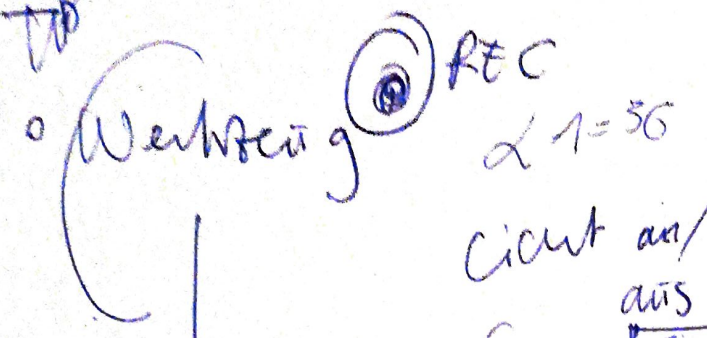 o Werkzeug
REC
α 1 = 36
Licht an/
aus